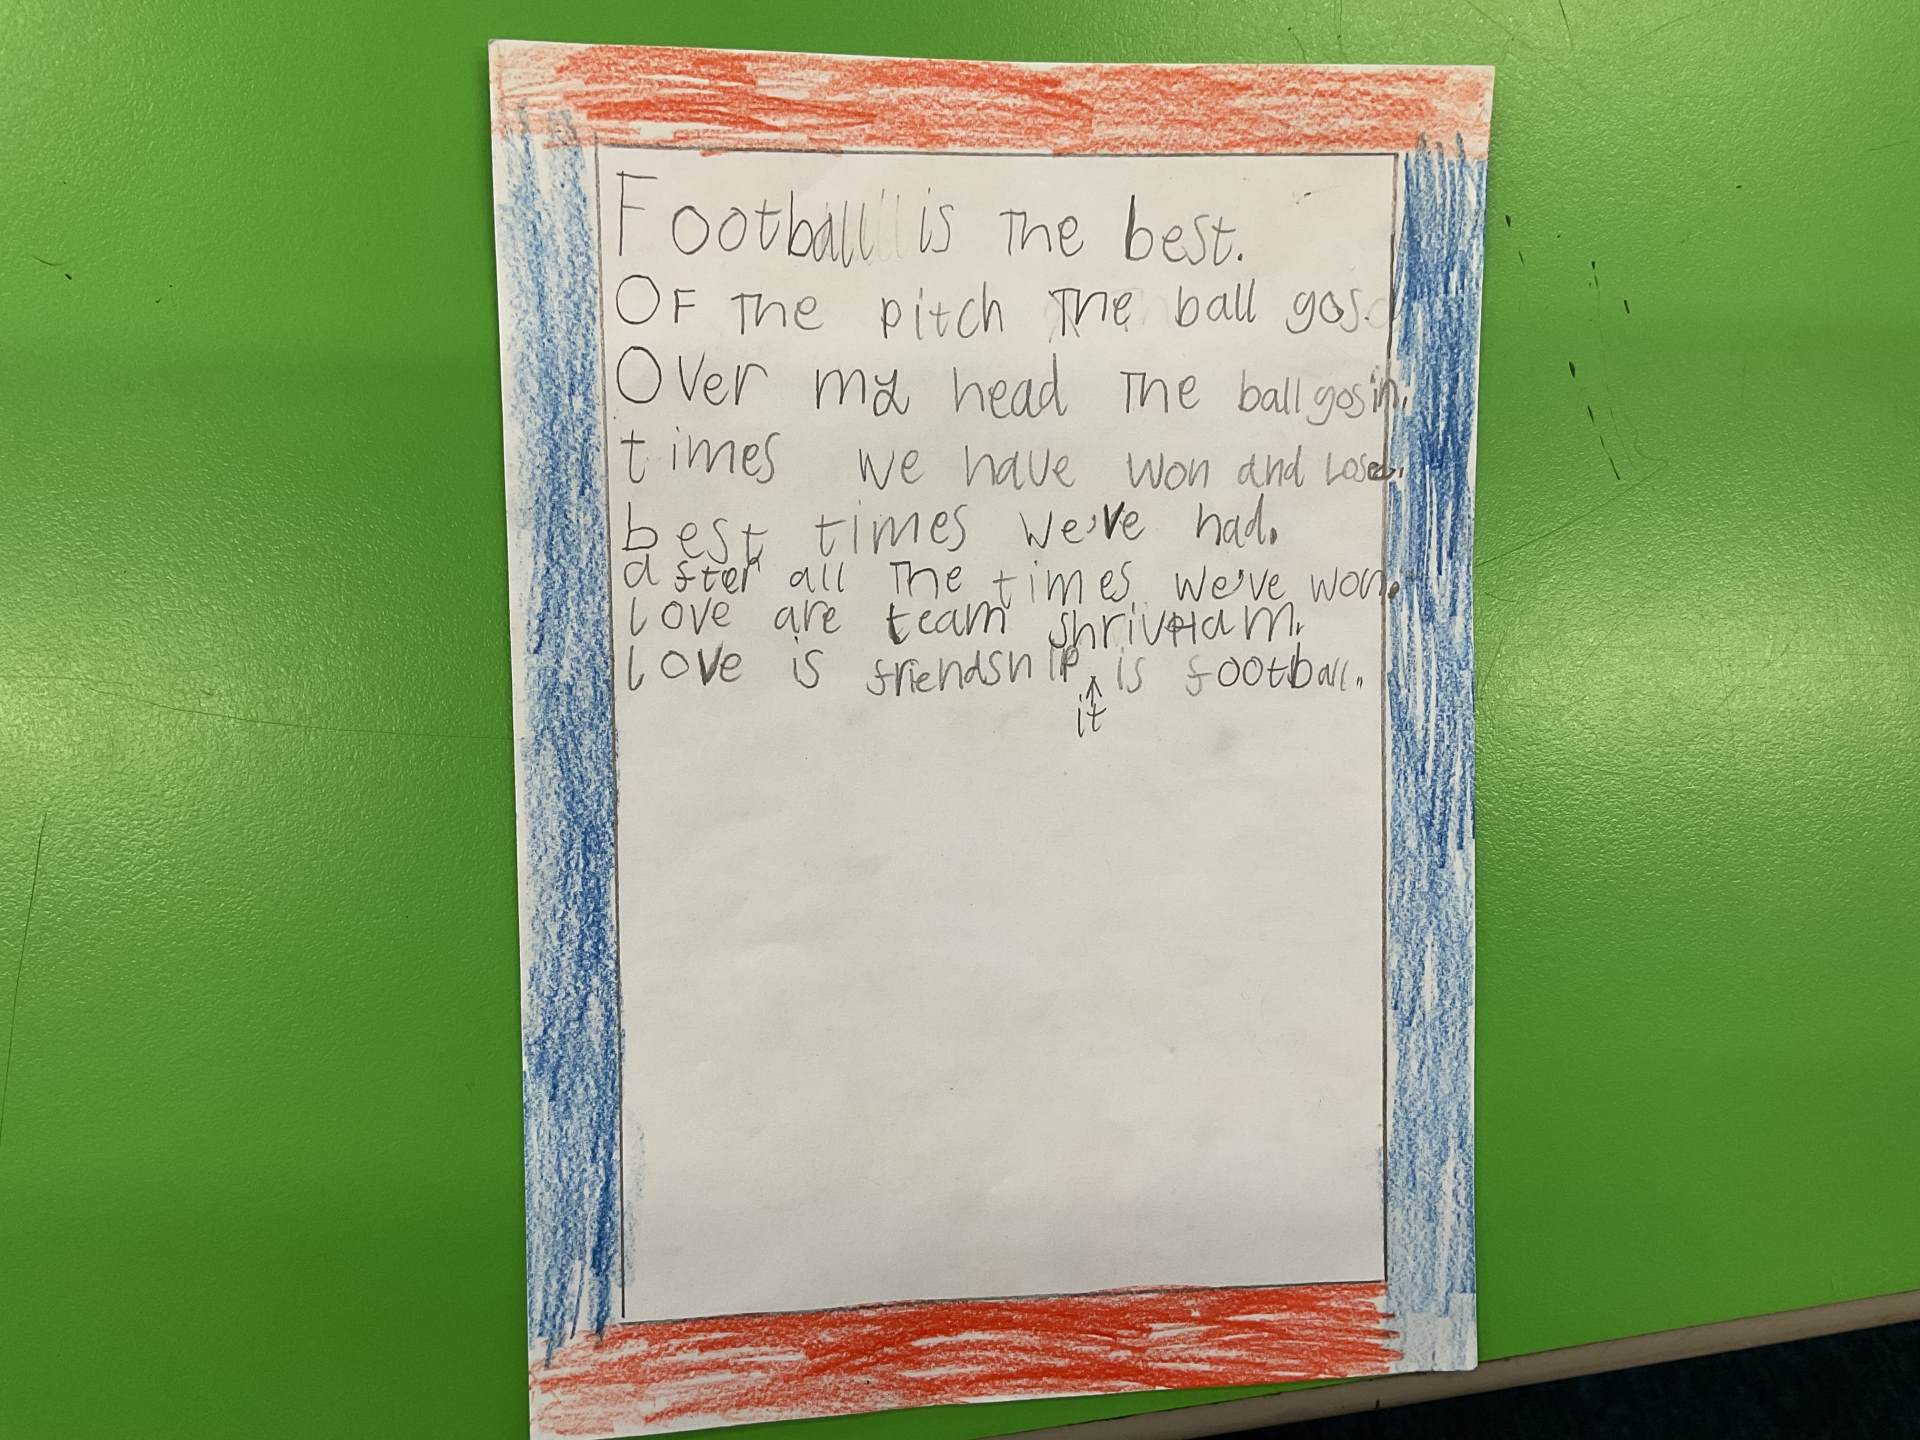 Football is The best.
OF The pitch The ball gos.
Over my head The ball gos in.
times we have won and Losed.
best times we've had.
after all The times we've won.
love are team shrivHam.
love is friendship is football.
it